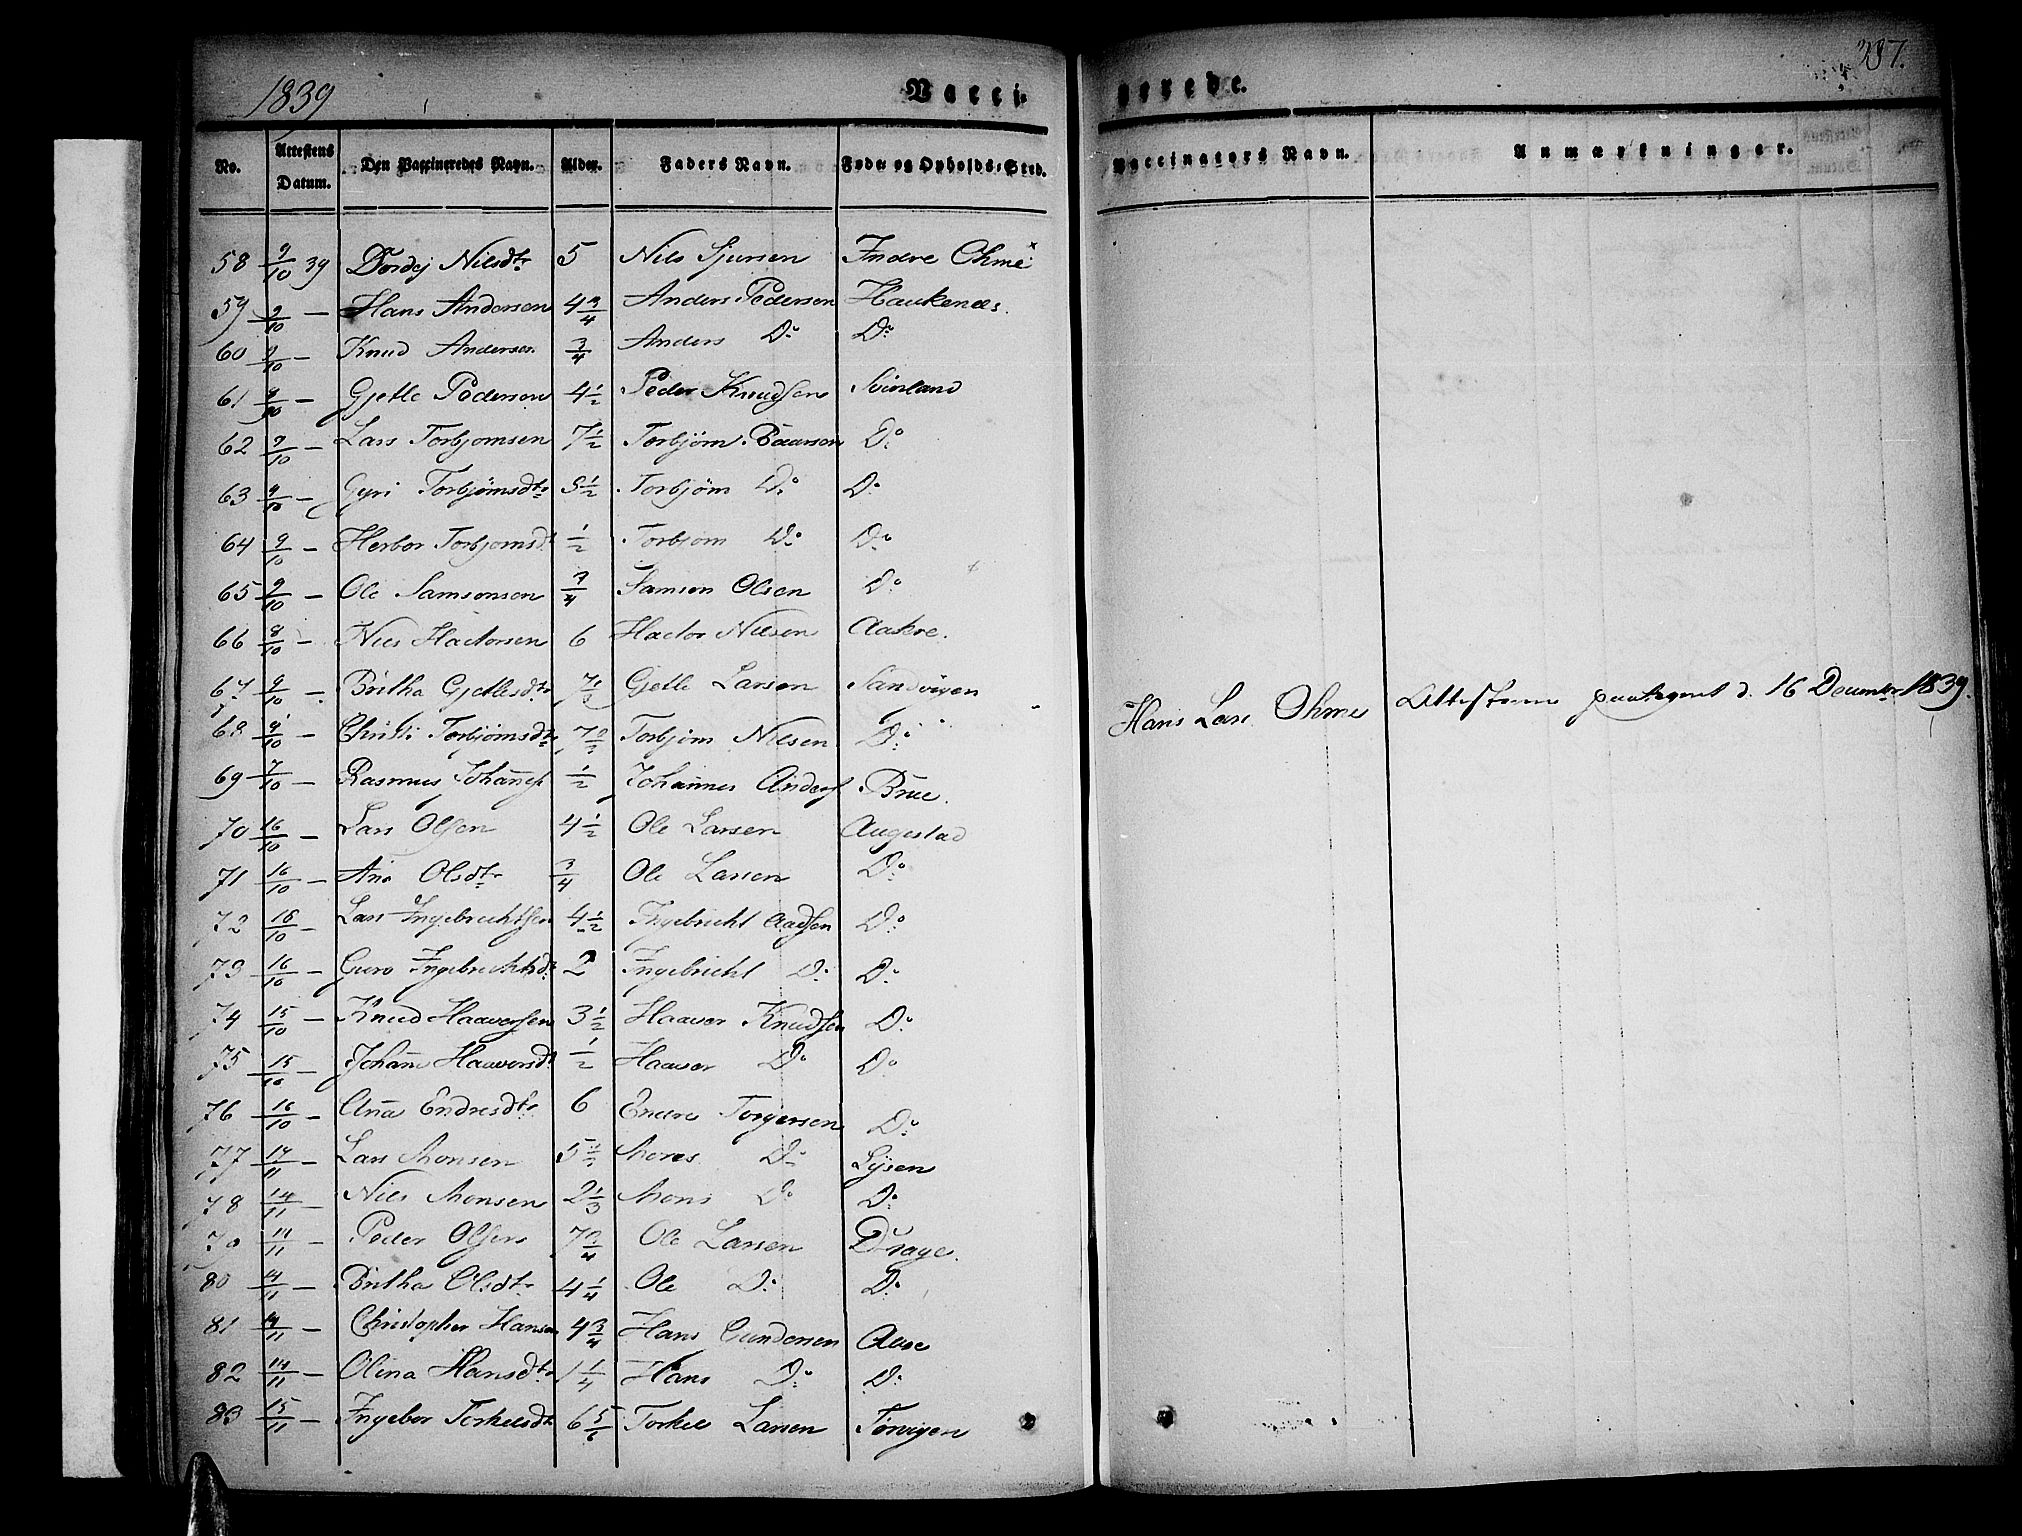 1839 Vacci- nerede. 387.
No. Attestens Datum. Den Vaccineredes Navn. Alder. Faders Navn. Føde og Opholds-Sted. Vaccinators Navn. Anmærkninger.
58 9/10 39 Dordej Nilsdtr 5 Nils Sjursen Indre Ohme
59 9/10 — Hans Andersen 4 3/4 Anders Pedersen Haukenæs.
60 9/10 — Knud Andersen 3/4 Anders Do Do
61 9/10 — Gjetle Pedersen 4 1/2 Peder Knudsen Svinland
62 9/10 — Lars Torbjørnsen 7 1/2 Torbjørn Baarsen Do
63 9/10 — Gyri Torbjørnsdtr 5 1/2 Torbjørn Do Do
64 9/10 — Herbor Torbjornsdt 1/2 Torbjørn Do Do
65 9/10 — Ole Samsonsen 3/4 Samson Olsen Do
66 8/10 — Niels Hactorsen 6 Hactor Nilsen Aakre.
67 9/10 — Britha Gjetlesdtr 7 1/2 Gjetle Larsen Sandvigen
68 9/10 — Christi Torbjørnsdtr 7 Torbjørn Nilsen Do
Hans Lars. Ohme Attesterne 16 Decembr 1839.
69 7/10 — Rasmus Johannes 1/2 Johannes Anders Brue.
70 16/10 — Lars Olsen 4 1/2 Ole Larsen Augestad
71 16/10 — Ana Olsdtr 3/4 Ole Larsen Do
72 16/10 — Lars Ingebrechtsen 4 1/2 Ingebricht Aadsen Do
73 16/10 — Guro Ingebrechtsdr 2 Ingebricht Do Do
74 15/10 — Knud Haaversen 3 1/2 Haaver Knudsen Do
75 15/10 — Johane Haaversdt 1/2 Haaver Do Do
76 16/10 — Ana Endresdtr 6 Endre Torgersen Do
77 14/11 — Lars Monsen 5 1/2 Mons Do Lysen
78 14/11 — Niels Monsen 2 1/3 Mons Do Do
79 14/11 — Peder Olsen 7 3/4 Ole Larsen Drage.
80 14/11 — Britha Olsdtr 4 1/4 Ole Do Do
81 14/11 — Christopher Hansen 4 3/4 Hans Gundersen Aase
82 14/11 — Olina Hansdtr 1 1/4 Hans Do Do
83 15/11 — Ingebor Torkelsdt 6 5/6 Torkel Larsen Torvigen